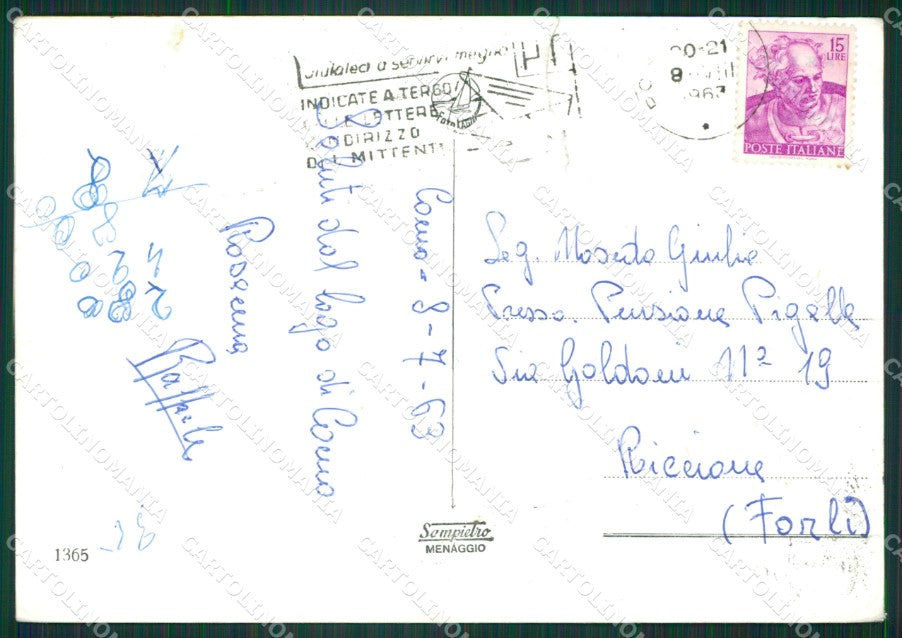 Aiutateci a servirvi meglio
INDICATE A TERGO
LETTERE
INDIRIZZO
DEL MITTENTE
20-21
8
1963
15
LIRE
POSTE ITALIANE
Como - 8-7-63
Saluti dal lago di Como
Rosanna
Raffaele
Seg. Moserda Giulia
Presso. Pensione Pigalle
Via Goldoni 11² 19
Riccione
(Forlì)
Sampietro
MENAGGIO
1365
CARTOLINOMANIA